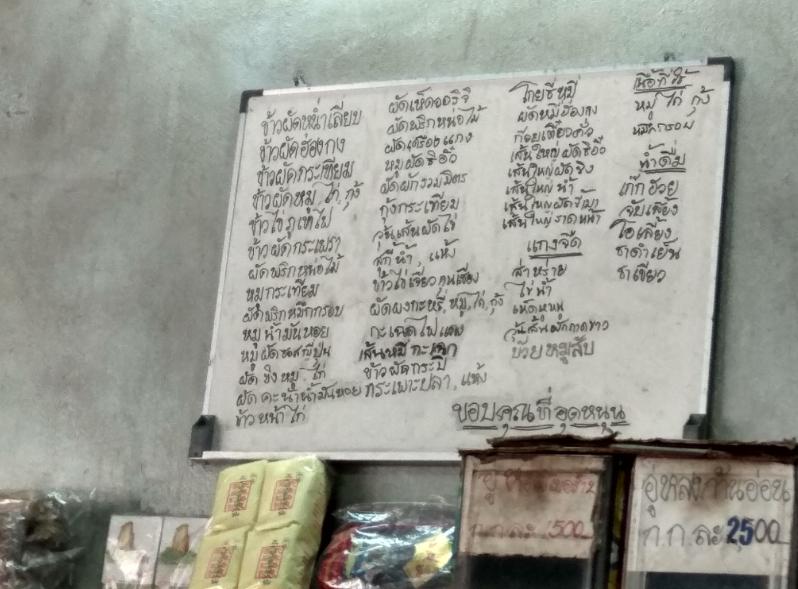 ข้าวผัดหนำเลียบ
ข้าวผัดฮ่องกง
ข้าวผัดกระเทียม
ข้าวผัดหมู, ไก่, กุ้ง
ข้าวไข่ภูเขาไฟ
ข้าวผัดกระเพรา
ผัดพริกหน่อไม้
หมูกระเทียม
ผัดพริกหมึกกรอบ
หมูน้ำมันหอย
หมูผัดซอสญี่ปุ่น
ผัดขิงหมู, ไก่
ผัดคะน้าน้ำมันหอย
ข้าวหน้าไก่
ผัดเห็ดออริจิ
ผัดพริกหน่อไม้
ผัดเครื่องแกง
หมูผัดซีอิ๊ว
ผัดผักรวมมิตร
กุ้งกระเทียม
วุ้นเส้นผัดไข่
สุกี้น้ำ, แห้ง
ข้าวไข่เจียวกุนเชียง
ผัดผงกะหรี่, หมู, ไก่, กุ้ง
กะเฉดไฟแดง
เส้นหมี่กะเฉด
ข้าวผัดกะปิ
กระเพาะปลา, แห้ง
โกยซีหมี่
ผัดหมี่ฮ่องกง
ก๋วยเตี๋ยวคั่ว
เส้นใหญ่ผัดซีอิ๊ว
เส้นใหญ่ผัดขิง
เส้นใหญ่น้ำ
เส้นใหญ่ผัดขี้เมา
เส้นใหญ่ราดหน้า
แกงจืด
สาหร่าย
ไข่น้ำ
เห็ดหูหนู
วุ้นเส้นผักกาดขาว
บ๊วยหมูสับ
เนื้อที่ใช้
หมู ไก่ กุ้ง
หมึกกรอบ
น้ำดื่ม
เก๊กฮวย
จับเลี้ยง
โอเลี้ยง
ชาดำเย็น
ชาเขียว
ขอบคุณที่อุดหนุน
ก.ก.ละ 1500
อู่หลงก้านอ่อน
ก.ก.ละ 2500